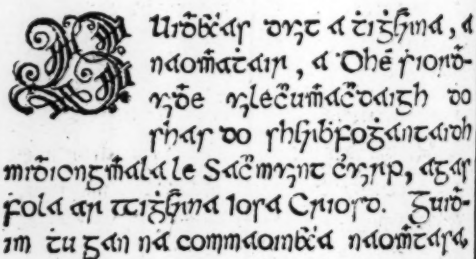 BUiḋeaċas duit a ṫiġearna, a
naoṁaṫair, a Dhé síorḋ-
uiḋe uileċumaċdaigh do
shás do sheirbfoġantaidh
miḋiongṁala le Sacrmuint ċuirp, agas
fola ar ttiġearna Iosa Criosd. Guiḋ-
im ṫu gan na commaoineaċa naoṁṫasa